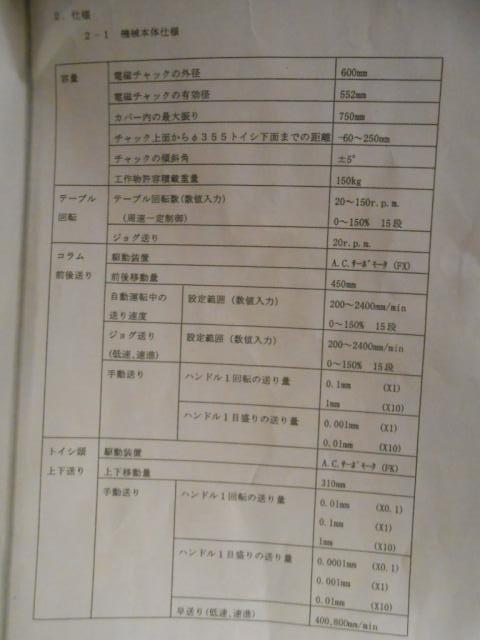 2．仕様
2－1　機械本体仕様
容量　電磁チャックの外径　600mm
電磁チャックの有効径　552mm
カバー内の最大振り　750mm
チャック上面からφ355トイシ下面までの距離　-60～250mm
チャックの傾斜角　±5°
工作物許容積載重量　150kg
テーブル　テーブル回転数(数値入力)　20～150r.p.m.
回転　(周速一定制御)　0～150%　15段
ジョグ送り　20r.p.m.
コラム　駆動装置　A.C.ｻｰﾎﾞﾓｰﾀ (FX)
前後送り　前後移動量　450mm
自動運転中の　設定範囲 (数値入力)　200～2400mm/min
送り速度　0～150%　15段
ジョグ送り　設定範囲 (数値入力)　200～2400mm/min
(低速,速準)　0～150%　15段
手動送り　ハンドル1回転の送り量　0.1mm　(X1)
1mm　(X10)
ハンドル1目盛りの送り量　0.001mm　(X1)
0.01mm　(X10)
トイシ頭　駆動装置　A.C.ｻｰﾎﾞﾓｰﾀ (FX)
上下送り　上下移動量　310mm
手動送り　ハンドル1回転の送り量　0.01mm　(X0.1)
0.1mm　(X1)
1mm　(X10)
ハンドル1目盛りの送り量　0.0001mm　(X0.1)
0.001mm　(X1)
0.01mm　(X10)
早送り(低速,速準)　400,800mm/min